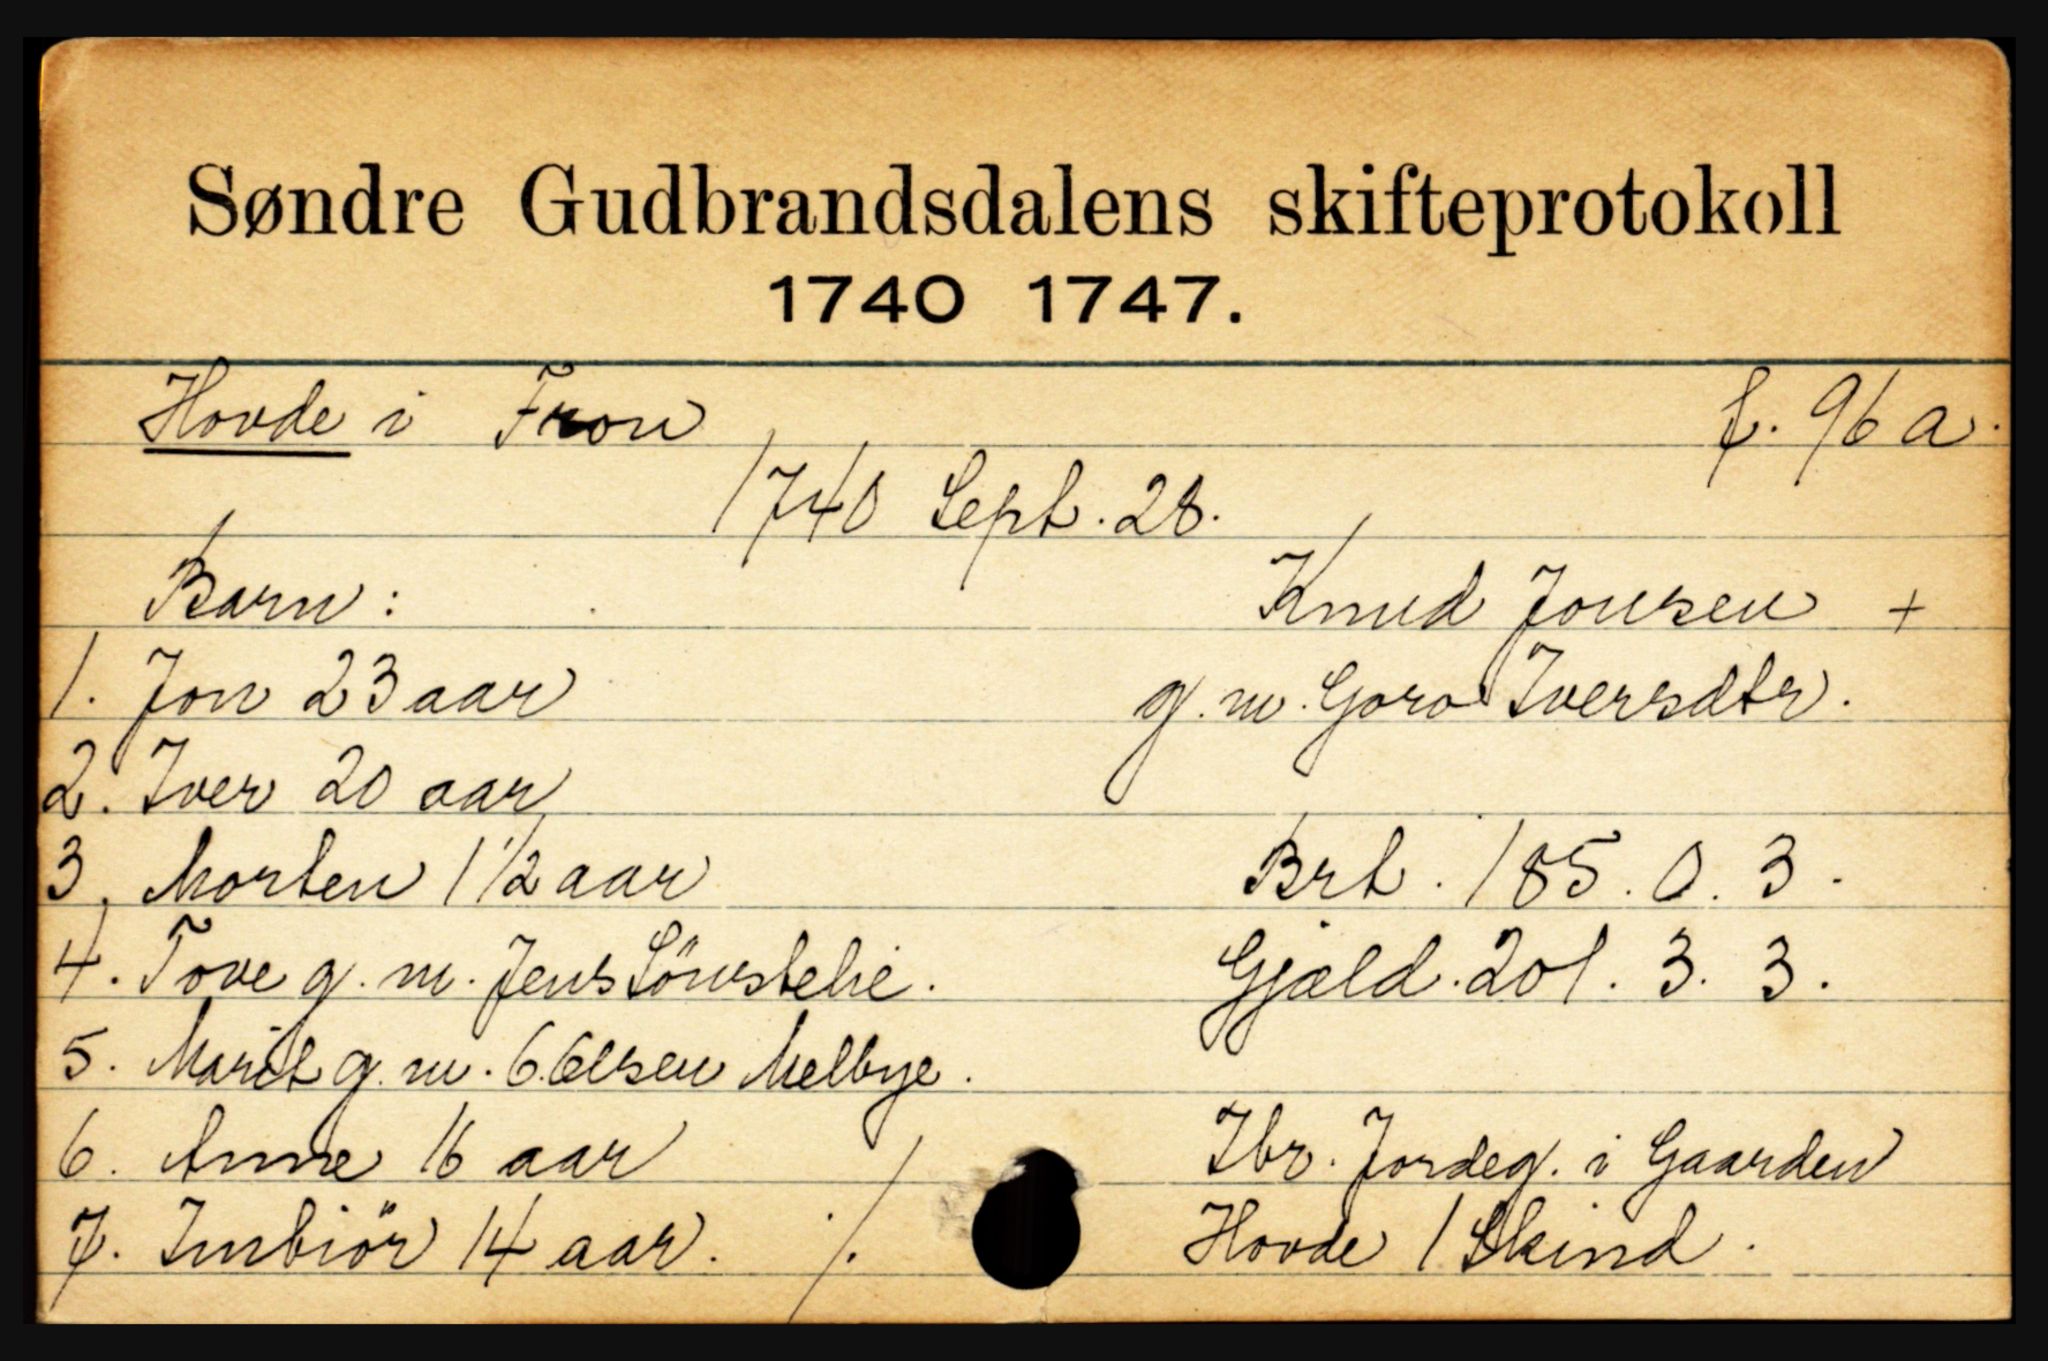 Søndre Gudbrandsdalens skifteprotokoll
1740 1747.
Hovde i Fron f. 96 a.
1740 Sept. 28.
Barn: Knud Jonsen +
1. Jon 23 aar g. m. Goro Iversdtr.
2. Iver 20 aar
3. Morten 1 1/2 aar Brt. 185. 0. 3.
4. Tove g. m. Jens Sönstelie. Gjæld. 201. 3. 3.
5. Marit g. m. Melbye.
6. Anne 16 aar Ibr. Jordeg. i Gaarden
7. Imbiör 14 aar. ./. Hovde 1 Skind.